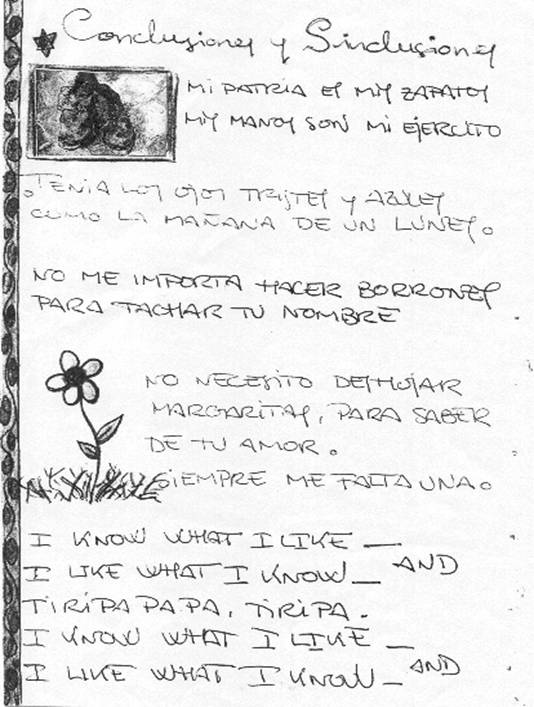 Conclusiones y Sinclusiones
MI PATRIA ES MIS ZAPATOS
MIS MANOS SON MI EJERCITO
TENIA LOS OJOS TRISTES Y AZULES
COMO LA MAÑANA DE UN LUNES.
NO ME IMPORTA HACER BORRONES
PARA TACHAR TU NOMBRE
NO NECESITO DESHOJAR
MARGARITAS, PARA SABER
DE TU AMOR.
SIEMPRE ME FALTA UNA.
I KNOW WHAT I LIKE _ AND
I LIKE WHAT I KNOW _
TIRIPA PA PA, TIRIPA.
I KNOW WHAT I LIKE _
I LIKE WHAT I KNOW _ AND